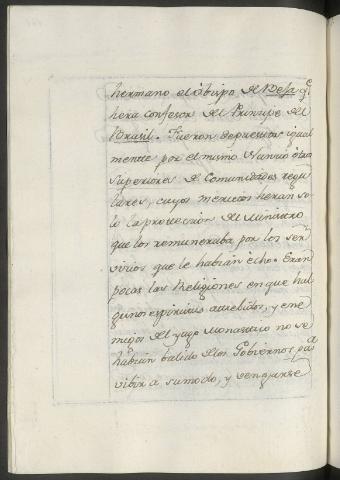 hermano el obispo de Pefa q.e
hera confesor del Principe del
Brasil. Fueron depuestos igual
mente por el mismo Nuncio otros
superiores de Comunidades regu
lares, cuyos meritos heran so
lo la proteccion del Ministro
que los remuneraba por los ser
vicios que le habian echo. Eran
pocas las Religiones en que hal
gunos espiritus atrebidos, y ene
migos del yugo Monastico no se
habian balido de los Gobiernos pa.a
vibir a su modo, y vengarse